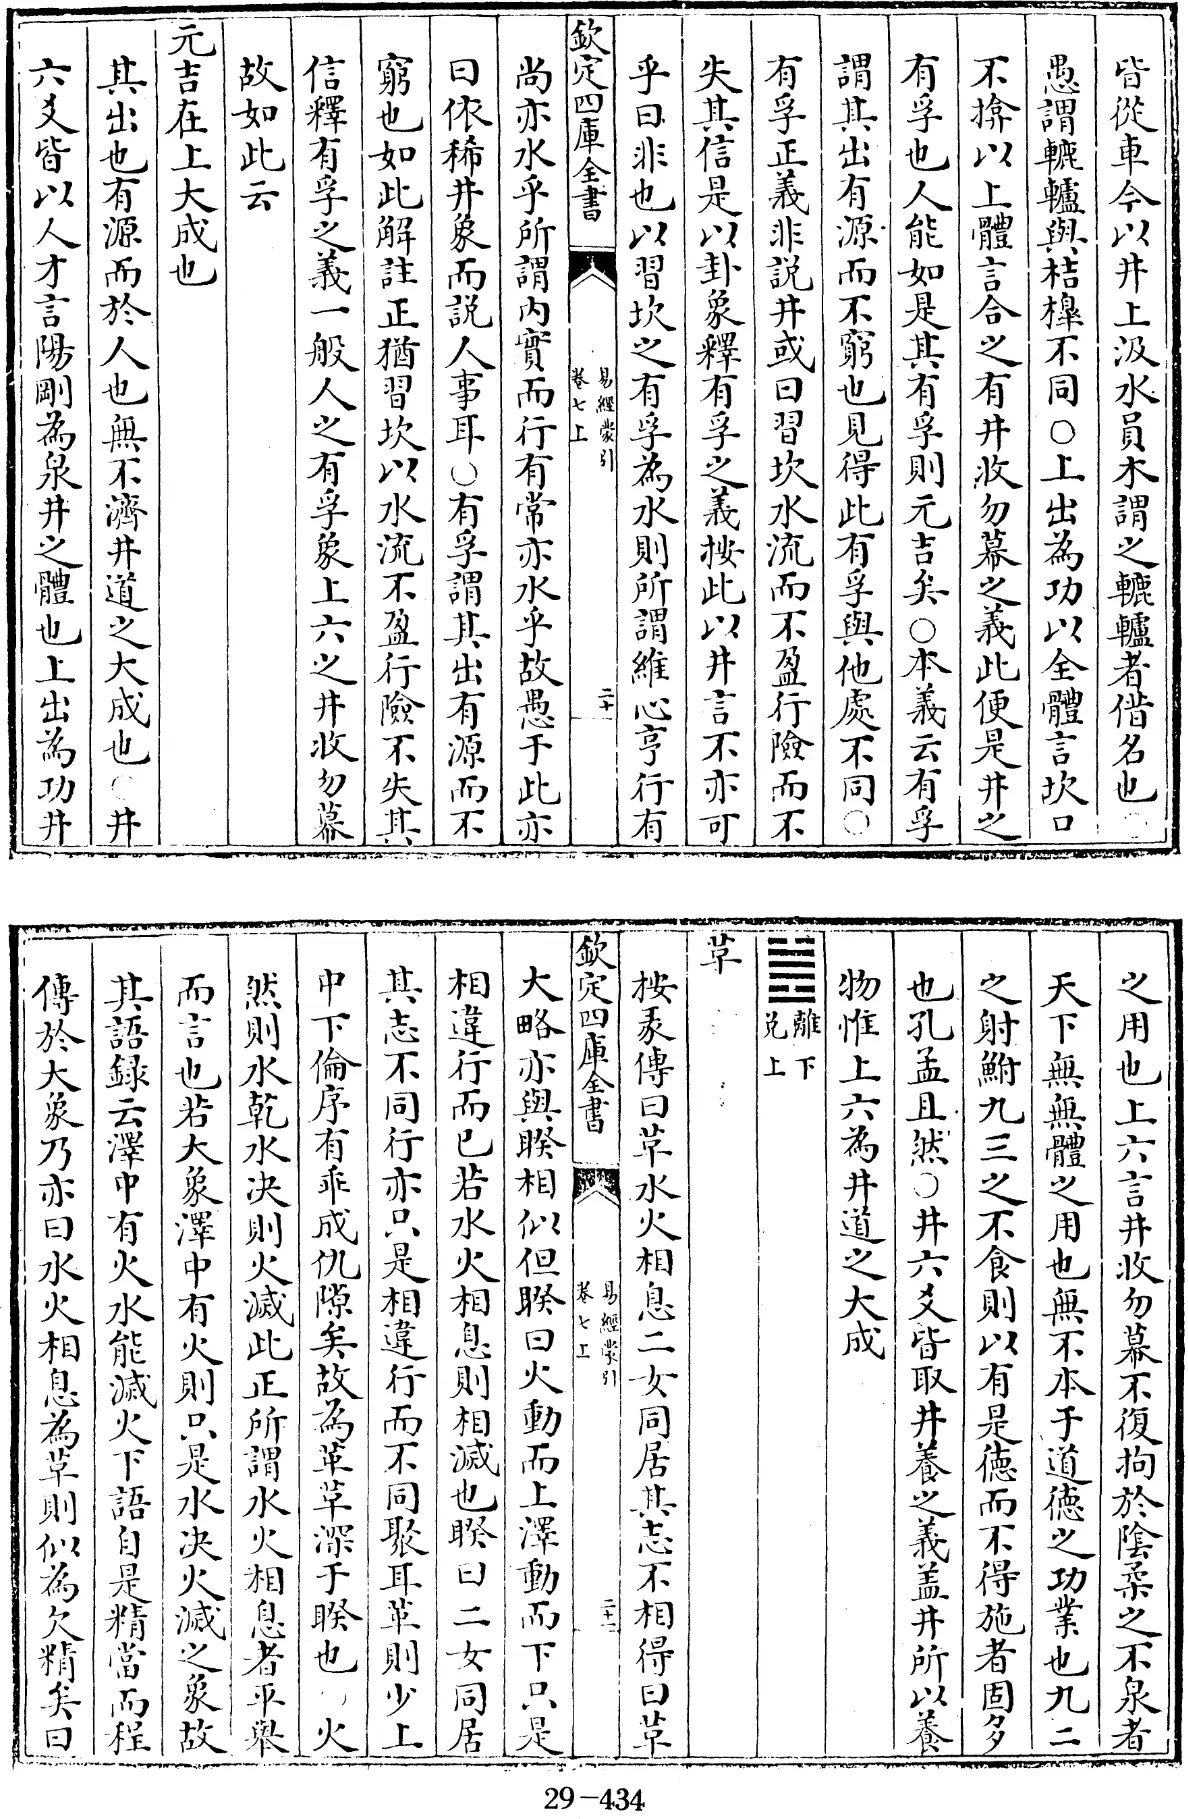 皆從車今以井上汲水員木謂之轆轤者借名也○
愚謂轆轤與桔橰不同○上出為功以全體言坎口
不揜以上體言合之有井收勿幕之義此便是井之
有孚也人能如是其有孚則元吉矣○本義云有孚
謂其出有源而不窮也見得此有孚與他處不同○
有孚正義非説井或曰習坎水流而不盈行險而不
失其信是以卦象釋有孚之義按此以井言不亦可
乎曰非也以習坎之有孚為水則所謂維心亨行有
欽定四庫全書
易經蒙引
卷七上
二十
尚亦水乎所謂内實而行有常亦水乎故愚于此亦
曰依稀井象而説人事耳○有孚謂其出有源而不
窮也如此解註正猶習坎以水流不盈行險不失其
信釋有孚之義一般人之有孚象上六之井收勿幕
故如此云
元吉在上大成也
其出也有源而於人也無不濟井道之大成也○井
六爻皆以人才言陽剛為泉井之體也上出為功井
之用也上六言井收勿幕不復拘於陰柔之不泉者
天下無無體之用也無不本于道德之功業也九二
之射鮒九三之不食則以有是德而不得施者固多
也孔孟且然○井六爻皆取井養之義盖井所以養
物惟上六為井道之大成
䷰離下
兌上
革
按彖傳曰革水火相息二女同居其志不相得曰革
欽定四庫全書
易經蒙引
卷七上
二十一
大略亦與睽相似但睽曰火動而上澤動而下只是
相違行而已若水火相息則相滅也睽曰二女同居
其志不同行亦只是相違行而不同聚耳革則少上
中下倫序有乖成仇隙矣故為革革深于睽也○火
然則水乾水决則火滅此正所謂水火相息者平舉
而言也若大象澤中有火則只是水决火滅之象故
其語録云澤中有火水能滅火下語自是精當而程
傳於大象乃亦曰水火相息為革則似為欠精矣曰
29-434